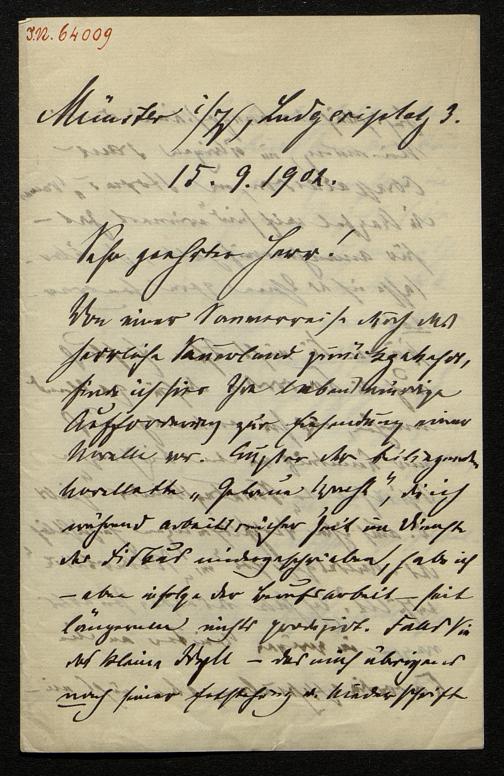 I.N. 64009
Münster i/W, Ludgeriplatz 3.
15. 9. 1902.
Sehr geehrter Herr!
Von einer Sommerreise durch das
herrliche Sauerland zurückgekehrt,
finde ich hier Ihre liebenswürdige
Aufforderung zur Einsendung einer
Novelle vor. Außer der beiliegenden
Novellette „Getreue Wacht", die ich
während arbeitsreicher Zeit im Dienste
des Fiskus niedergeschrieben, habe ich
– eben infolge der Berufsarbeit – seit
längerem nichts produziert. Falls Sie
das kleine Idyll – das mich übrigens
nach seiner Entstehung u. Niederschrift